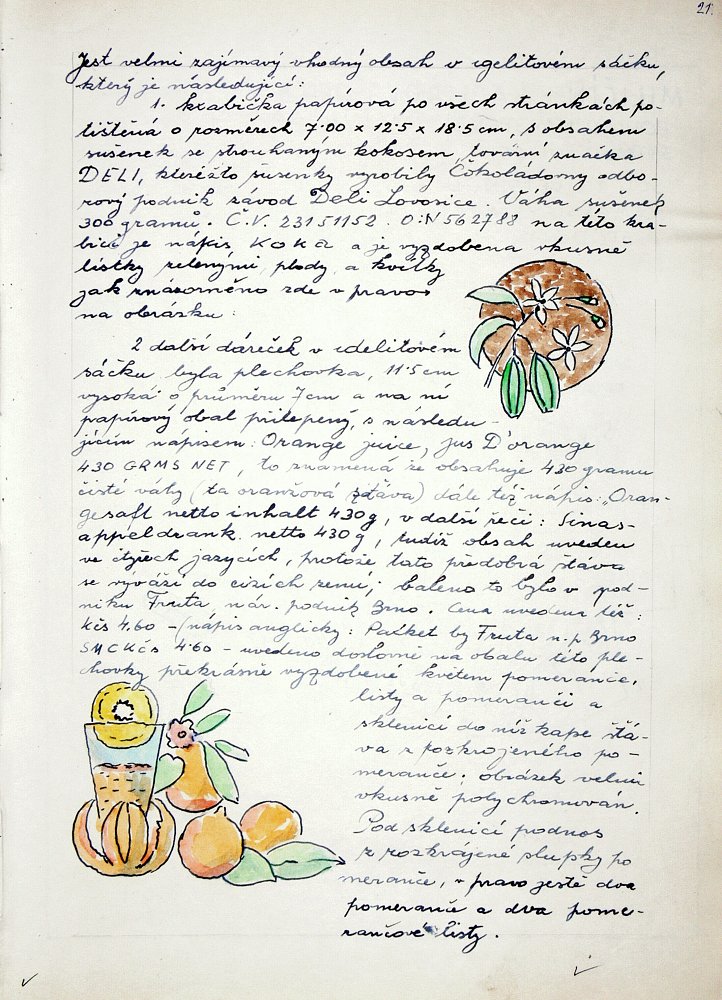 21.
Jest velmi zajímavý vhodný obsah v igelitovém sáčku,
který je následující:
1. krabička papírová po všech stránkách po-
tištěná o rozměrech 7·00 x 12·5 x 18·5 cm, s obsahem
sušenek se strouhaným kokosem, tovární značka
DELI, kteréžto sušenky vyrobily Čokoládovny odbo-
rový podnik závod Deli Lovosice. Váha sušenek
300 gramů. Č.V. 23151152. O:N 562788 na této kra-
bici je nápis KOKA a je vyzdobena vkusně
lístky zelenými plody a kvítky
jak znázorněno zde v pravo
na obrázku:
2 další dáreček v idelitovém
sáčku byla plechovka, 11·5 cm
vysoká o průměru 7cm a na ní
papírový obal přilepený, s následu-
jícím nápisem: Orange juice, jus D'orange
430 GRMS NET, to znamená že obsahuje 430 gramu
čisté váhy (ta oranžová šťáva) dále též nápis: „Oran-
gesaft netto inhalt 430g, v další řeči: Sinas-
appeldrank. netto 430g, tudíž obsah uveden
ve čtyřech jazycích, protože tato předobrá šťáva
se vyváží do cizích zemí; baleno to bylo v pod-
niku Fruta nár. podnik Brno. Cena uvedena též:
Kčs 4.60 - (nápis anglicky: Packet by Fruta n.p. Brno
SMCKčs 4·60 - uvedeno doslovně na obalu této ple-
chovky překrásně vyzdobené květem pomeranče,
listy a pomeranči a
sklenicí do níž kape šťá-
va z rozkrojeného po-
meranče. obrázek velmi
vkusně polychromován.
Pod sklenicí podnos
z rozkrájené slupky po
meranče, v pravo ještě dva
pomeranče a dva pome-
rančové listy.